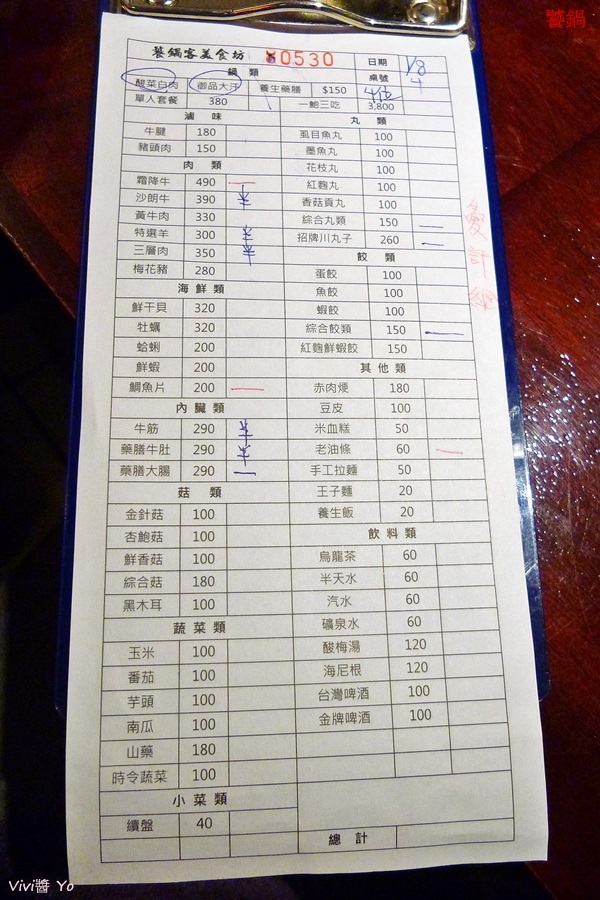 饕鍋
饕鍋客美食坊 00530 日期 1/8
鍋類 桌號 4
酸菜白肉 御品大汗 養生藥膳 $150 4位
單人套餐 380 一鮑三吃 3,800
滷味 丸類
牛腱 180 虱目魚丸 100
豬頭肉 150 墨魚丸 100
肉類 花枝丸 100
霜降牛 490 一 紅麴丸 100
沙朗牛 390 半 香菇貢丸 100
黃牛肉 330 綜合丸類 150 一
特選羊 300 半 招牌川丸子 260 一
三層肉 350 半 餃類
梅花豬 280 蛋餃 100
海鮮類 魚餃 100
鮮干貝 320 蝦餃 100
牡蠣 320 綜合餃類 150 一
蛤蜊 200 紅麴鮮蝦餃 150
鮮蝦 200 其他類
鯛魚片 200 一 赤肉焿 180
內臟類 豆皮 100
牛筋 290 半 米血糕 50
藥膳牛肚 290 半 老油條 60 一
藥膳大腸 290 一 手工拉麵 50
菇類 王子麵 20
金針菇 100 養生飯 20
杏鮑菇 100 飲料類
鮮香菇 100 烏龍茶 60
綜合菇 180 半天水 60
黑木耳 100 汽水 60
蔬菜類 礦泉水 60
玉米 100 酸梅湯 120
番茄 100 海尼根 120
芋頭 100 台灣啤酒 100
南瓜 100 金牌啤酒 100
山藥 180
時令蔬菜 100
小菜類
續盤 40
總計
Vivi醬 Yo